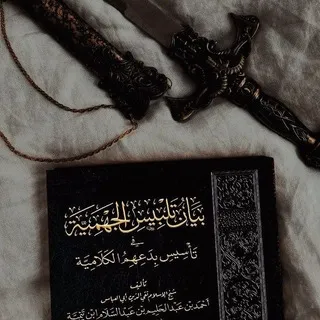 بيان تلبيس الجهمية
في
تأسيس بدعهم الكلامية
تأليف
شيخ الإسلام تقي الدين أبي العباس
أحمد بن عبد الحليم بن عبد السلام ابن تيمية